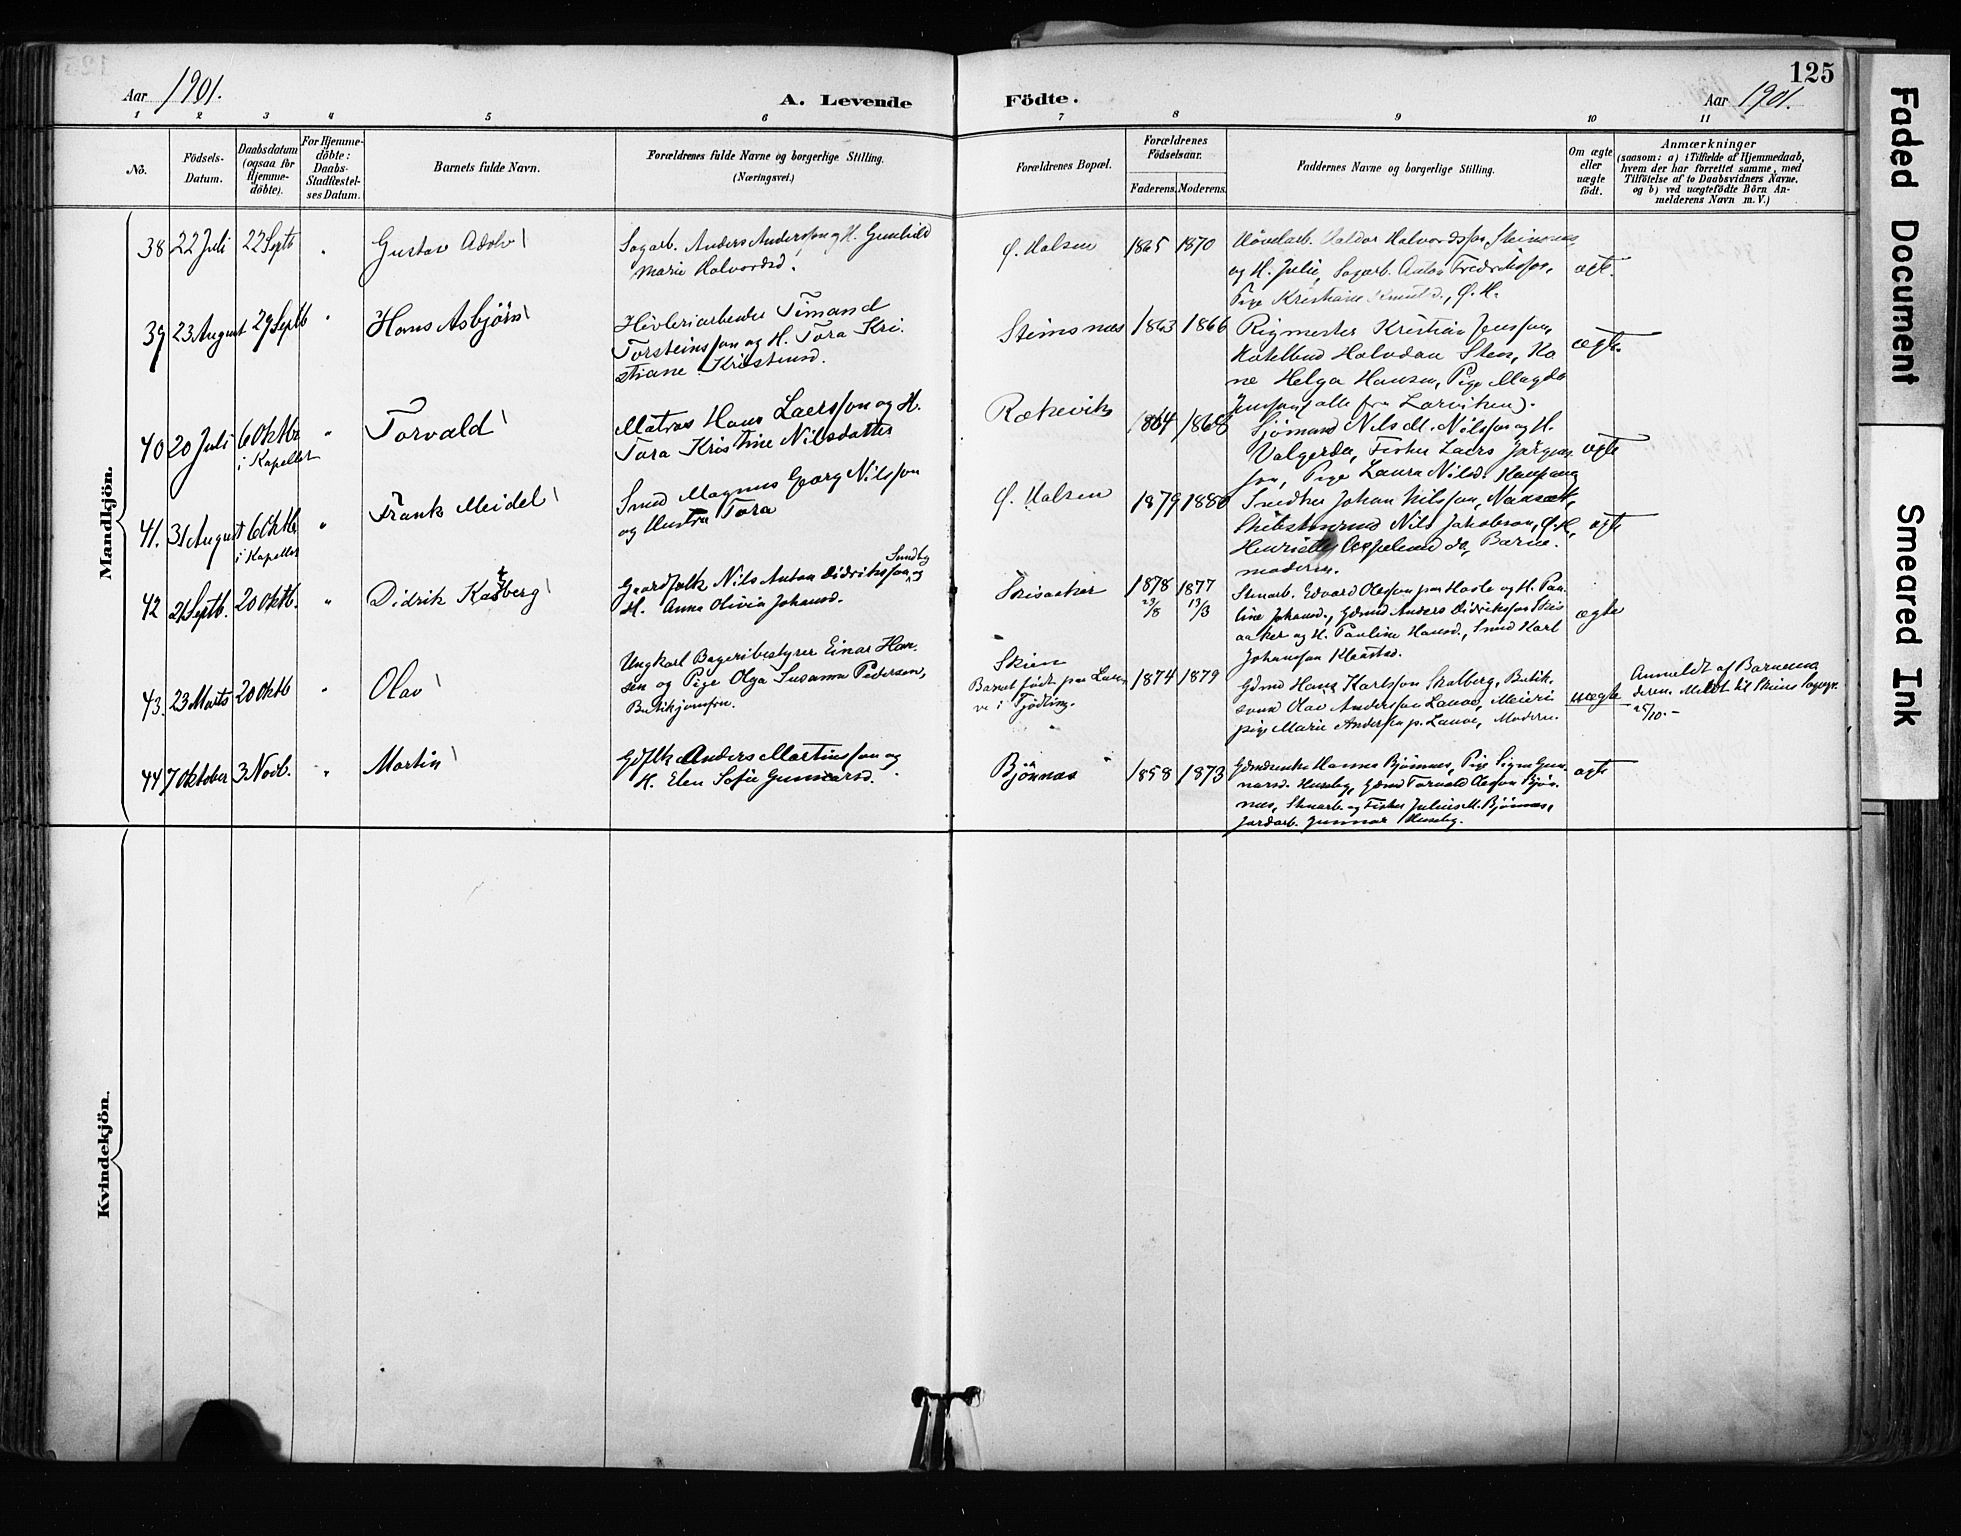 125
Aar 1901.
A. Levende Födte.
Aar 1901.
1 2 3 4 5 6 7 8 9 10 11
No.
Födsels-
Datum.
Daabsdatum
(ogsaa for
Hjemme-
döbte).
For Hjemme-
döbte:
Daabs-
Stadfæstel-
ses Datum.
Barnets fulde Navn.
Forældrenes fulde Navne og borgerlige Stilling.
(Næringsvei.)
Forældrenes Bopæl.
Forældrenes
Födselsaar.
Faderens. Moderens.
Faddernes Navne og borgerlige Stilling.
Om ægte
eller
uægte
født.
Anmærkninger
(saasom: a) i Tilfælde af Hjemmedaab,
hvem der har forrettet samme, med
Tilföielse af to Daabsvidners Navne.
og b) ved uægtefödte Börn An-
melderens Navn m. V.)
Mandkjön.
38 22 Juli 22 Septb " Gustav Adolv
Sagarb. Anders Anderssön og H. Gunhild
Marie Halvordsd.
Ö. Halsen 1865 1870
Hövelarb. Halvordssön, Steinsnes
og H. Julie, Sagarb. Anton Fredrikssön,
Pige Kristiane Knutsd., Ö. H.
ægte.
39 23 August 29 Septb " Hans Asbjörn
Hövleriarbeider Timand
Torsteinssön og H. Tora Kri-
stiane Kristensd.
Steinsnes 1863 1866
Rigmester Kristian Jenssön,
Halvdan Sten, Ko
ne Helga Hansen, Pige Magda
Jenssen (alle fra Larviken).
ægte.
40 20 Juli 6 Oktbr " Torvald
i Kapellet
Matros Hans Laerssön og H.
Tora Kristine Nilsdatter
Rækevik 1864 1868
Sjömand Nils M. Nilssön og H.
Valgerda, Fisker Laers Jörgens
sön, Pige Laura Nilsd. Kaupang
ægte
41. 31 August 6 Oktb " Frank Meidel
i Kapellet
Smed Magnus Georg Nilsson
og Hustru Tora
Ö. Halsen 1879 1880
Snedker Johan Nilsson, Nanset,
Skibstömmermand Nils Jakobson, Ö. H.,
Henriette do, Barne-
moderen.
ægte
42 21 Septb. 20 Oktb. " Didrik Kastberg
Gaardfolk Nils Anton Didrikssön, Sundby og
H. Anna Olivia Johansd.
Skisaaker 1878 1877
23/8 13/3
Stenarb. Edvard Olsson paa Hasle og H. Pau-
line Johansd., Gdmd Anders Didrikssön Skis
aaker og H. Pauline Hansd., Smed Karl
Johanssön Klaastad.
ægte
43. 23 Marts 20 Oktb " Olav
Ungkarl Bageribestyrer Einar Han-
sen og Pige Olga Susanna Pedersen,
Butikjomfru.
Skien
Barnet født paa Lau-
ve i Tjödling.
1874 1879
Gdmd Hans Karlsson Skalberg, Butik-
svend Olav Anderssön Lauve, Meieri
pige Marie Andersen p. Lauve, Moderen.
uægte
Anmeldt af Barnemo
deren. Meldt til Skiens Sogepr.
25/10.-
44 7 Oktober 3 Novb. " Martin
Gdflk Anders Martinssön og
H. Elen Sofie Gunnarsd.
Bjönnes 1858 1873
Gdmdenke Hanna Bjönnes, Pige Signe Gun-
narsd. Huseby, Gdmd Torvald Olsson Bjön-
nes, Stenarb. og Fisker Julius M. Bjönnes,
Jordarb. Gunnar Huseby.
ægte
Kvindekjön.
Faded Document
Smeared Ink